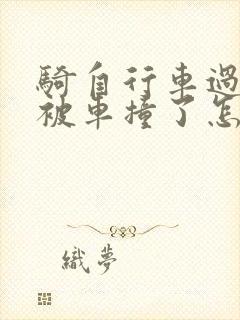 騎自行車過
被車撞了怎
織夢